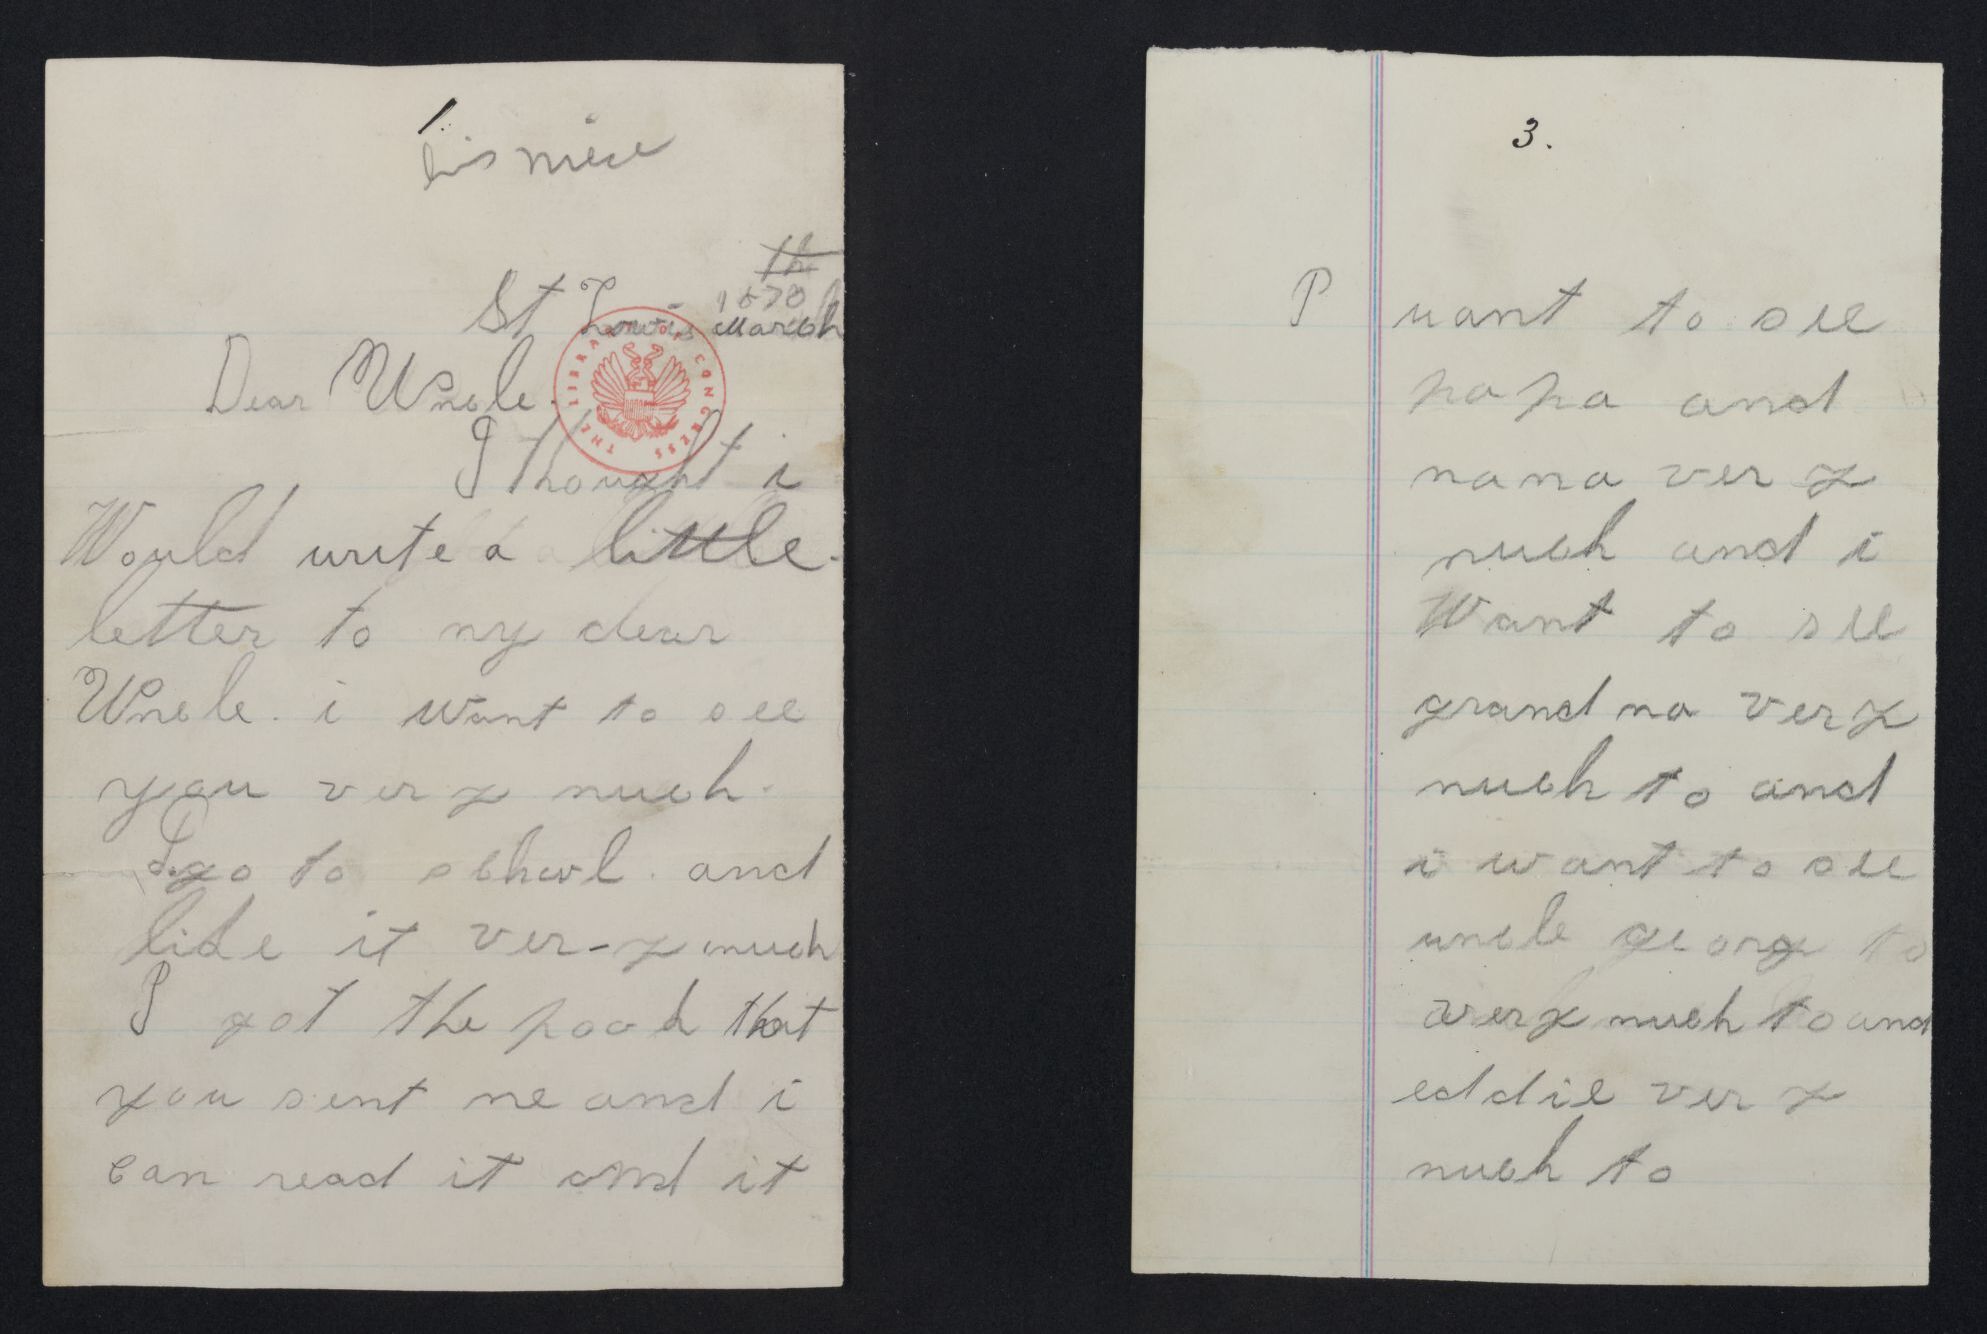 1.
his niece
th
1878
St Louis March
Dear Uncle.
I thought i
Would write a little.
letter to my dear
Uncle. i want to see
you very much.
I go to school. and
like it ver-y much
I got the pook that
you sent me and i
can read it and it
THE LIBRARY OF CONGRESS
3.
I want to see
papa and
nana very
much and i
Want to see
grand ma very
much to and
i want to see
uncle georg to
very much to and
eddie very
much to